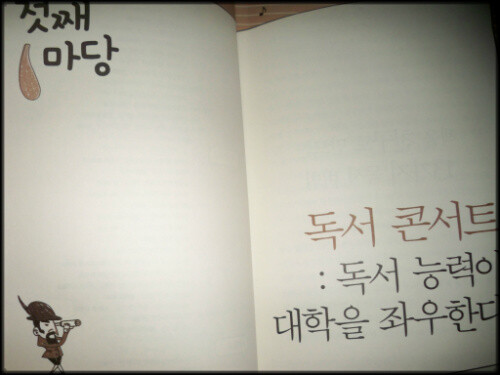 첫째
마당
독서 콘서트
: 독서 능력이
대학을 좌우한다